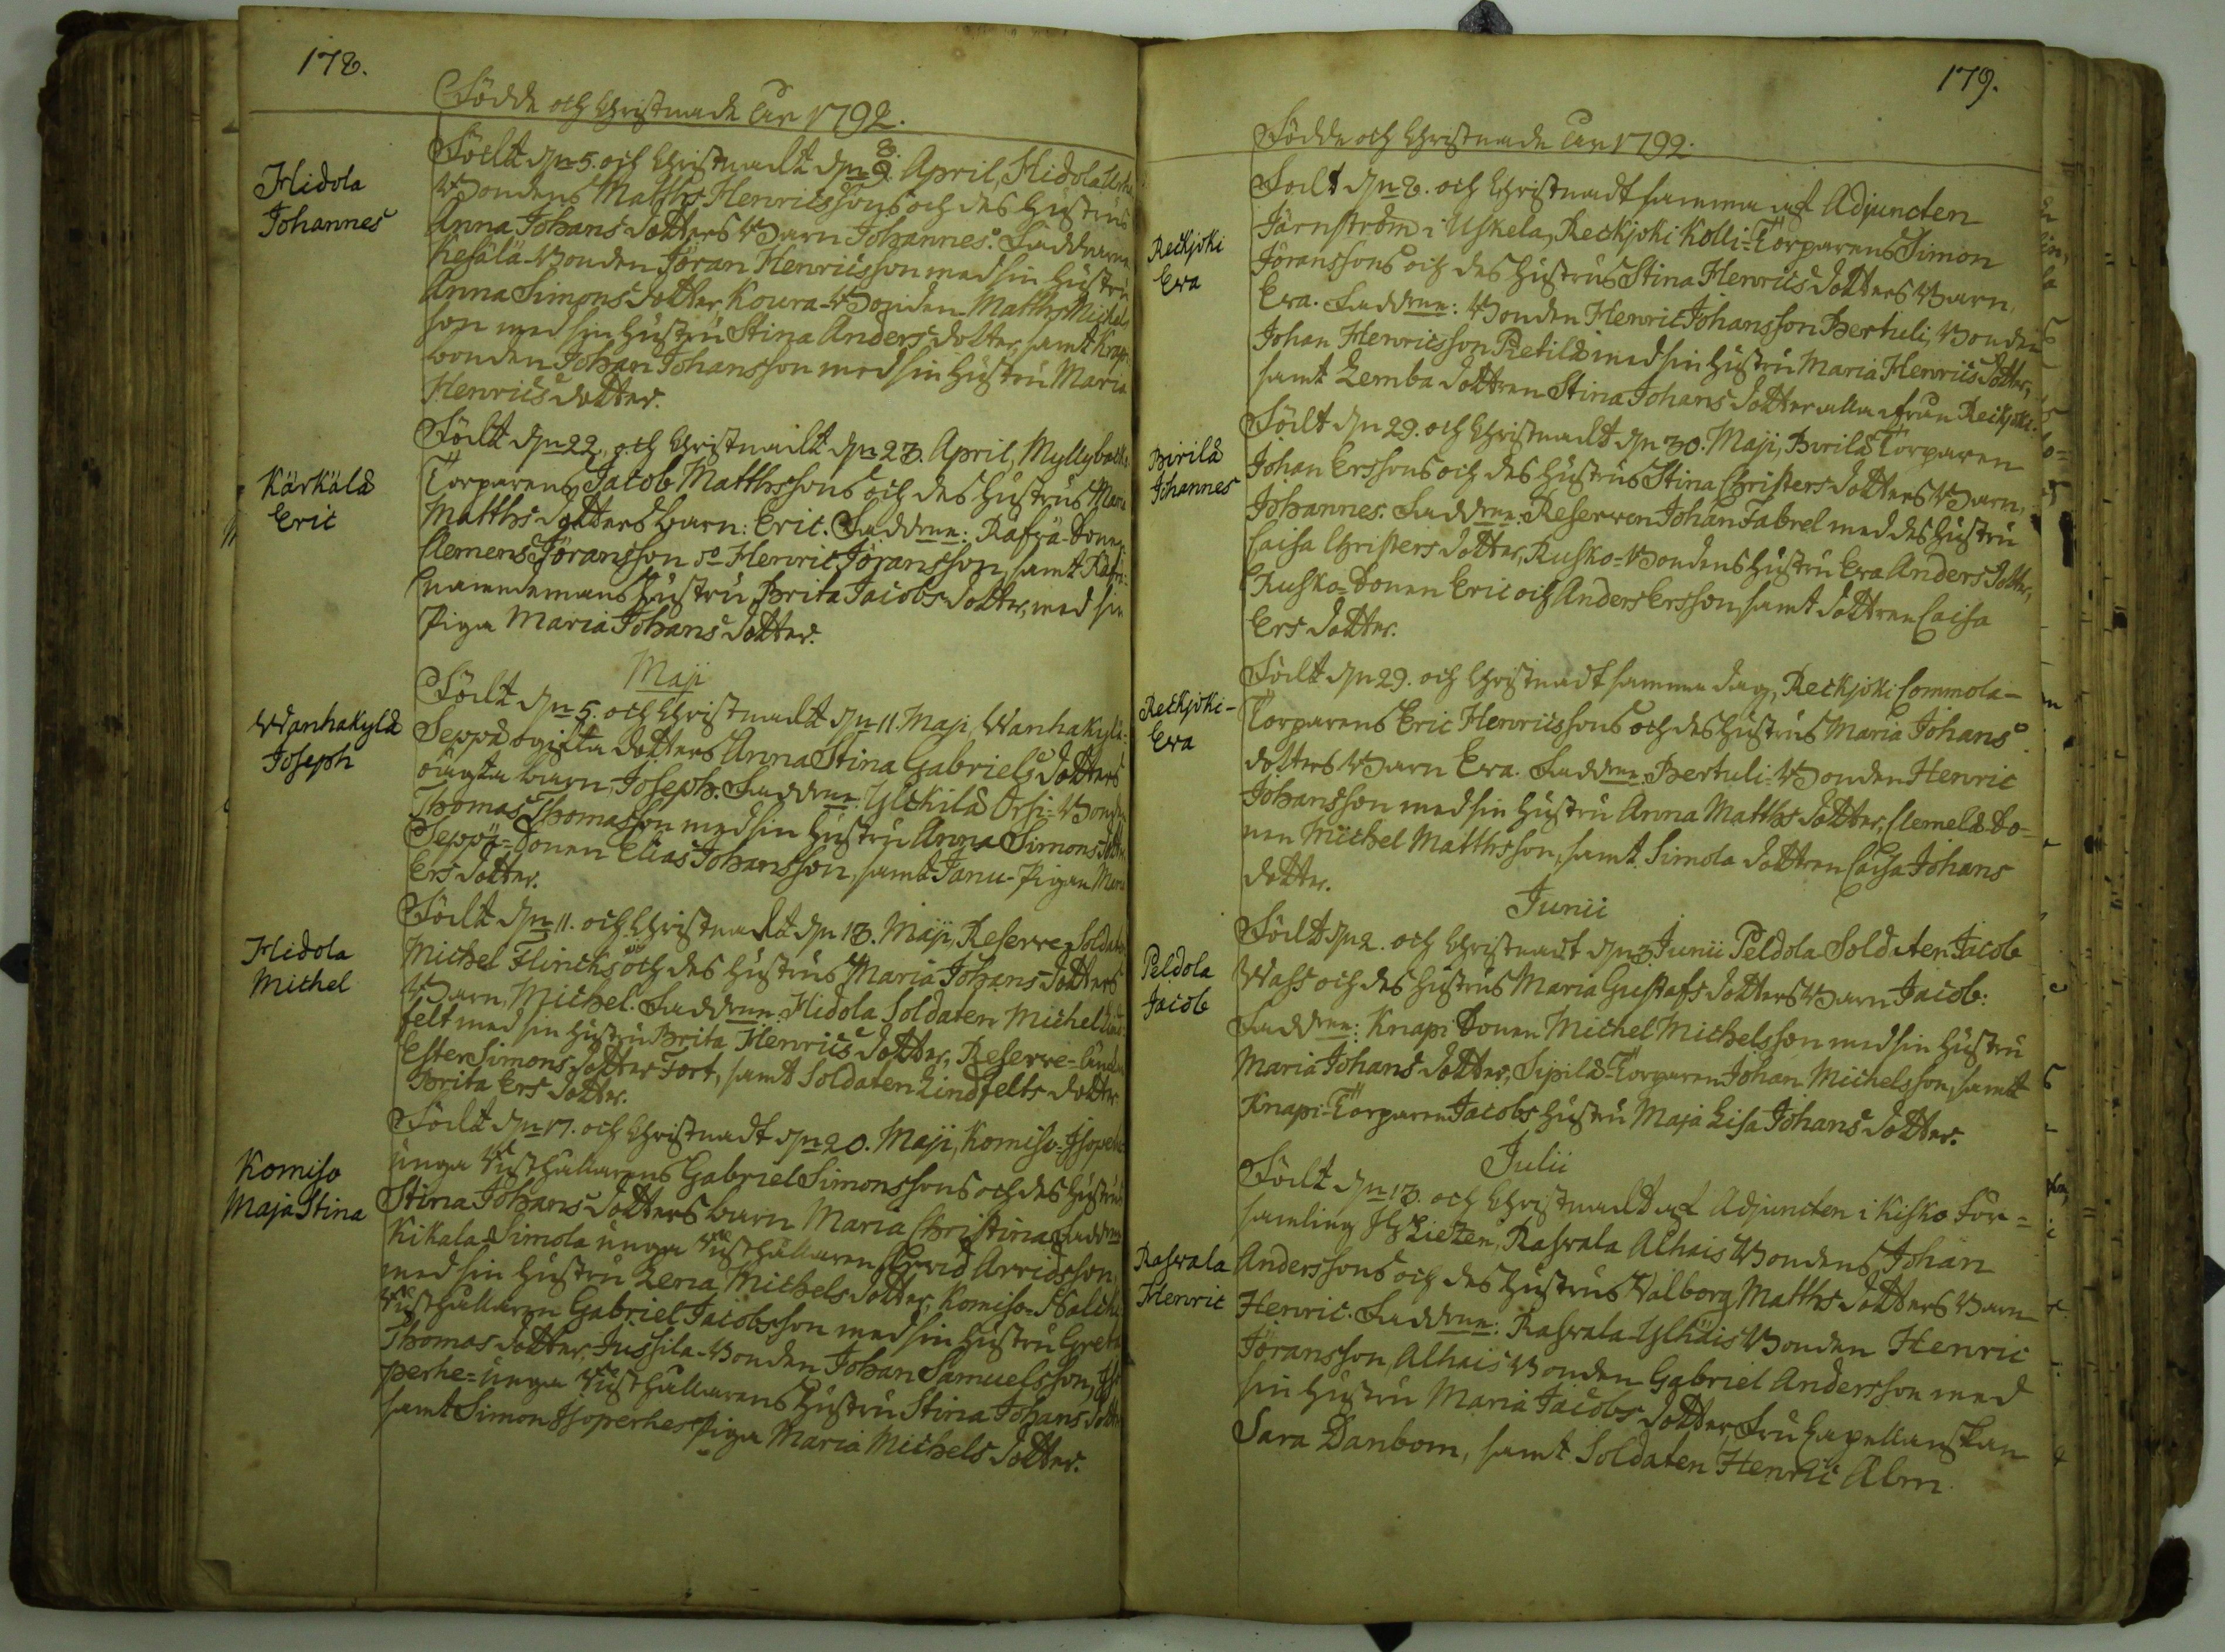 178.
Födde och Christnade Åhr 1792.
Hidola
Johannes
Födt dn 5. och Christnadt dn 8. April, Hidola
Bondens Matths Henricssons och des Hustrus
Anna Johans dotters Barn Johannes. Faddrarne
Kesälä-Bonden Jöran Henricsson med sin Hustru
Anna Simons dotter, Koura-Bonden Matths Michels
son med sin Hustru Stina Anders dotter, samt
bonden Johan Johansson med sin Hustru Maria
Henrics dotter.
Kärkälä
Eric
Födt dn 22. och Christnadt dn 23. April, Myllybacka
Torparens Jacob Matthssons och des Hustrus Maria
Matths dotters barn: Eric. Faddrne: Rafrä-Sonen
Clemens Jöransson Henric Jöransson, samt
nämndemans Hustru Brita Jacobs dotter, med sin
Piga Maria Johans dotter.
Maji
Wanhakylä
Joseph
Födt dn 5. och Christnadt dn 11. Maji, Wanhakylä-
Seppä ogifta dotters Anna Stina Gabriels dotters
oägta barn, Joseph. Faddrne: Ylikilä Orsi-Bonden
Thomas Thomasson med sin Hustru Anna Simons dotter
Seppä-Sonen Elias Johansson, samt Janu-Pigan Maria
Ers dotter.
Hidola
Michel
Födt dn 11. och Christnadt dn 13. Maji, Reserve-Soldaten
Michel Flincks och des Hustrus Maria Johans dotters
Barn, Michel. Faddrne: Hidola Soldaten Michel Lind-
felt med sin Hustru Brita Henrics dotter, Reserve-
Ester Simons dotter Fort, samt Soldaten Lindfelts dotter
Brita Ers dotter.
Komiso
Maja Stina
Födt dn 17. och Christnadt dn 20. Maji, Komiso-Isoperhe
unga Rusthållarens Gabriel Simonssons och des Hustrus
Stina Johans dotters barn Maria Christina. Faddrne
Kikala-Simola unga Rusthållaren Arvid Arvidsson,
med sin Hustru Lena Michels dotter, Komiso-
Rusthållaren Gabriel Jacobsson med sin Hustru Greta
Thomas dotter, Jussila-Bonden Johan Samuelsson, Iso
perhe-unga Rusthållarens Hustru Stina Johans dotter
samt Simon Isoperhes Piga Maria Michels dotter.
179.
Födde och Christnade Åhr 1792.
Reckjoki
Eva
Födt dn 8. och Christnadt samma af Adjuncten
Järnström i Uskela, Reckjoki Kolli-Torparens Simon
Jöranssons och des Hustrus Stina Henrics dotters Barn,
Eva. Faddrne: Bonden Henric Johansson Bertuli, Bonden
Johan Henricsson Pietilä med sin Hustru Maria Henrics dotter,
samt Lemba dottren Stina Johans dotter alla ifrån Reckjoki.
Pirilä
Johannes
Födt dn 29. och Christnadt dn 30. Maji, Pirilä Torparen
Johan Erssons och des Hustrus Stina Christers dotters Barn,
Johannes. Faddrne: Reserven Johan Fabrel med des Hustru
Caisa Christers dotter, Rusko-Bondens Hustru Eva Anders dotter,
Rusko-Sonen Eric och Anders Ersson, samt dottren Caisa
Ers dotter.
Reckjoki-
Eva
Födt dn 29. och Christnadt samma dag, Reckjoki Commola-
Torparens Eric Henricssons och des Hustrus Maria Johans
dotters Barn Eva. Faddrne: Bertuli-Bonden Henric
Johansson med sin Hustru Anna Matths dotter, Clemelä So-
nen Michel Matthsson, samt Simola dottren Caisa Johans
dotter.
Junii
Peldola
Jacob
Födt dn 2. och Christnadt dn 3. Junii Peldola Soldaten Jacob
Wass och des Hustrus Maria Gustafs dotters Barn Jacob:
Faddrne: Knapi Sonen Michel Michelsson med sin Hustru
Maria Johans dotter, Sipilä-Torparen Johan Michelsson, samt
Knapi-Torparen Jacobs Hustru Maja Lisa Johans dotter.
Julii
Rasvala
Henric
Födt dn 13. och Christnadt af Adjuncten i Kisko För-
samling Lietzen, Rasvala Alhais Bondens, Johan
Anderssons och des Hustrus Walborg Matths dotters Barn
Henric. Faddrne: Rasvala-Ylhäis Bonden Henric
Jöransson, Alhais Bonden Gabriel Andersson med
sin Hustru Maria Jacobs dotter, Fru Capellanskan
Sara Danbom, samt Soldaten Henric Alm